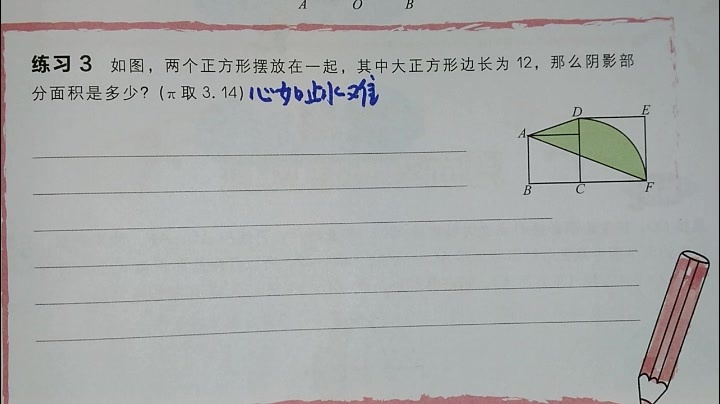 A O B
练习 3 如图，两个正方形摆放在一起，其中大正方形边长为 12，那么阴影部
分面积是多少？(π 取 3.14) 心如止水难
D E
A
B C F